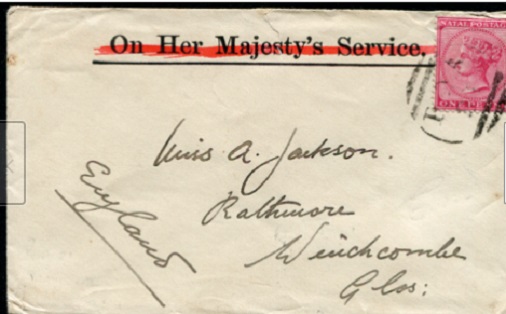 On Her Majesty's Service.
NATAL POSTAGE
ONE PENNY
Miss A. Jackson.
Rathmore
Winchcombe
Glos:
England